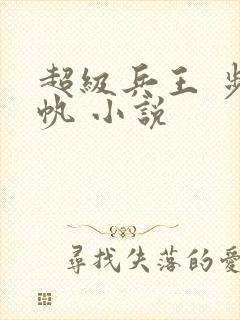 超級兵王 步
帆 小說
尋找失落的愛